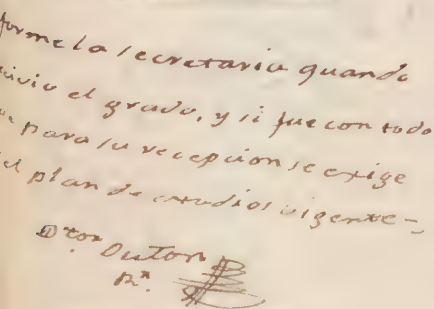 forme la secretaria quando
el grado, y si fue con todo
para su recepcion se exige
el plan de estudios vigente –
D.tor
R.n